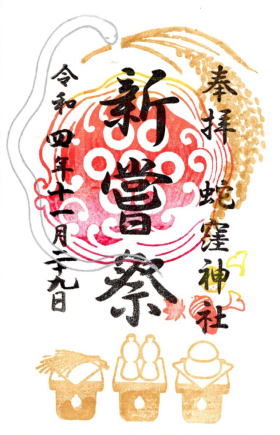 奉拝 蛇窪神社
新嘗祭
令和四年十一月二十九日